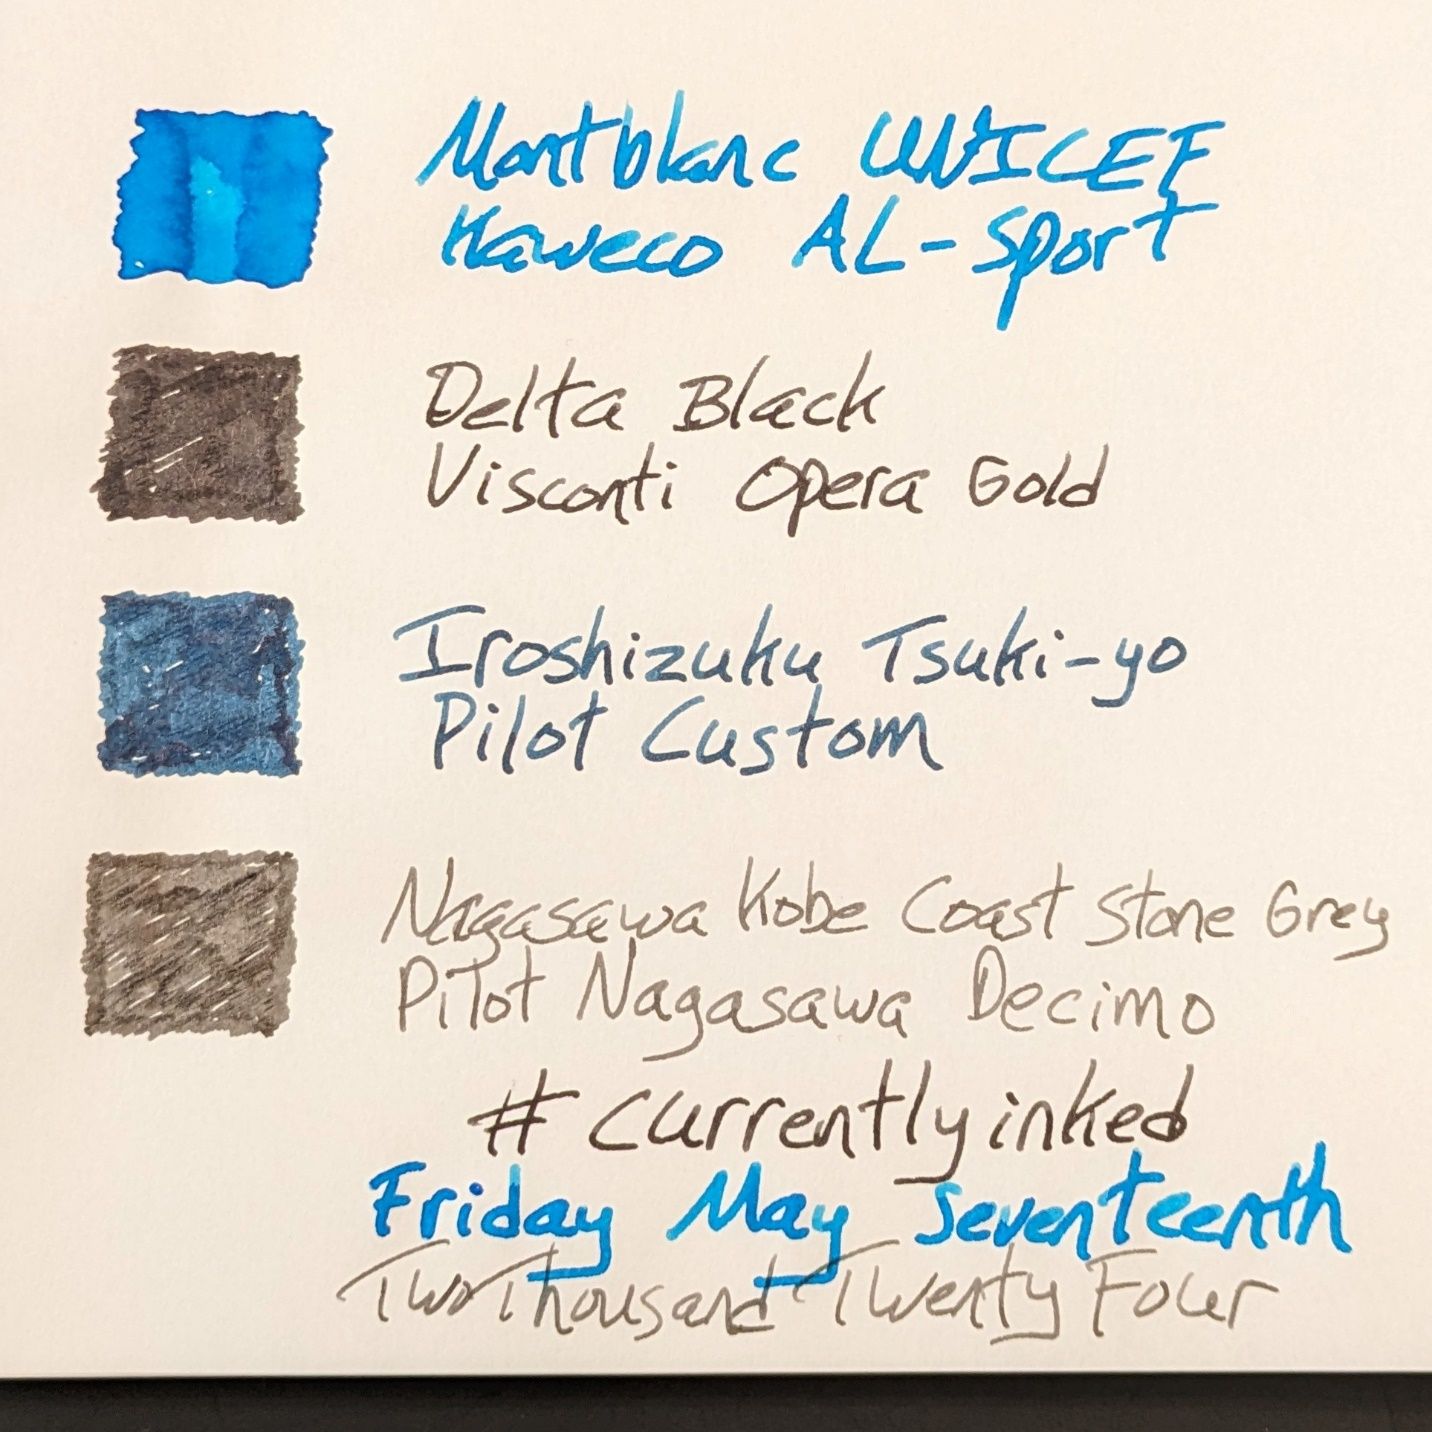 Montblanc UNICEF
Kaweco AL-Sport
Delta Black
Visconti Opera Gold
Iroshizuku Tsuki-yo
Pilot Custom
Nagasawa Kobe Coast Stone Grey
Pilot Nagasawa Decimo
#currentlyinked
Friday May Seventeenth
Two Thousand Twenty Four